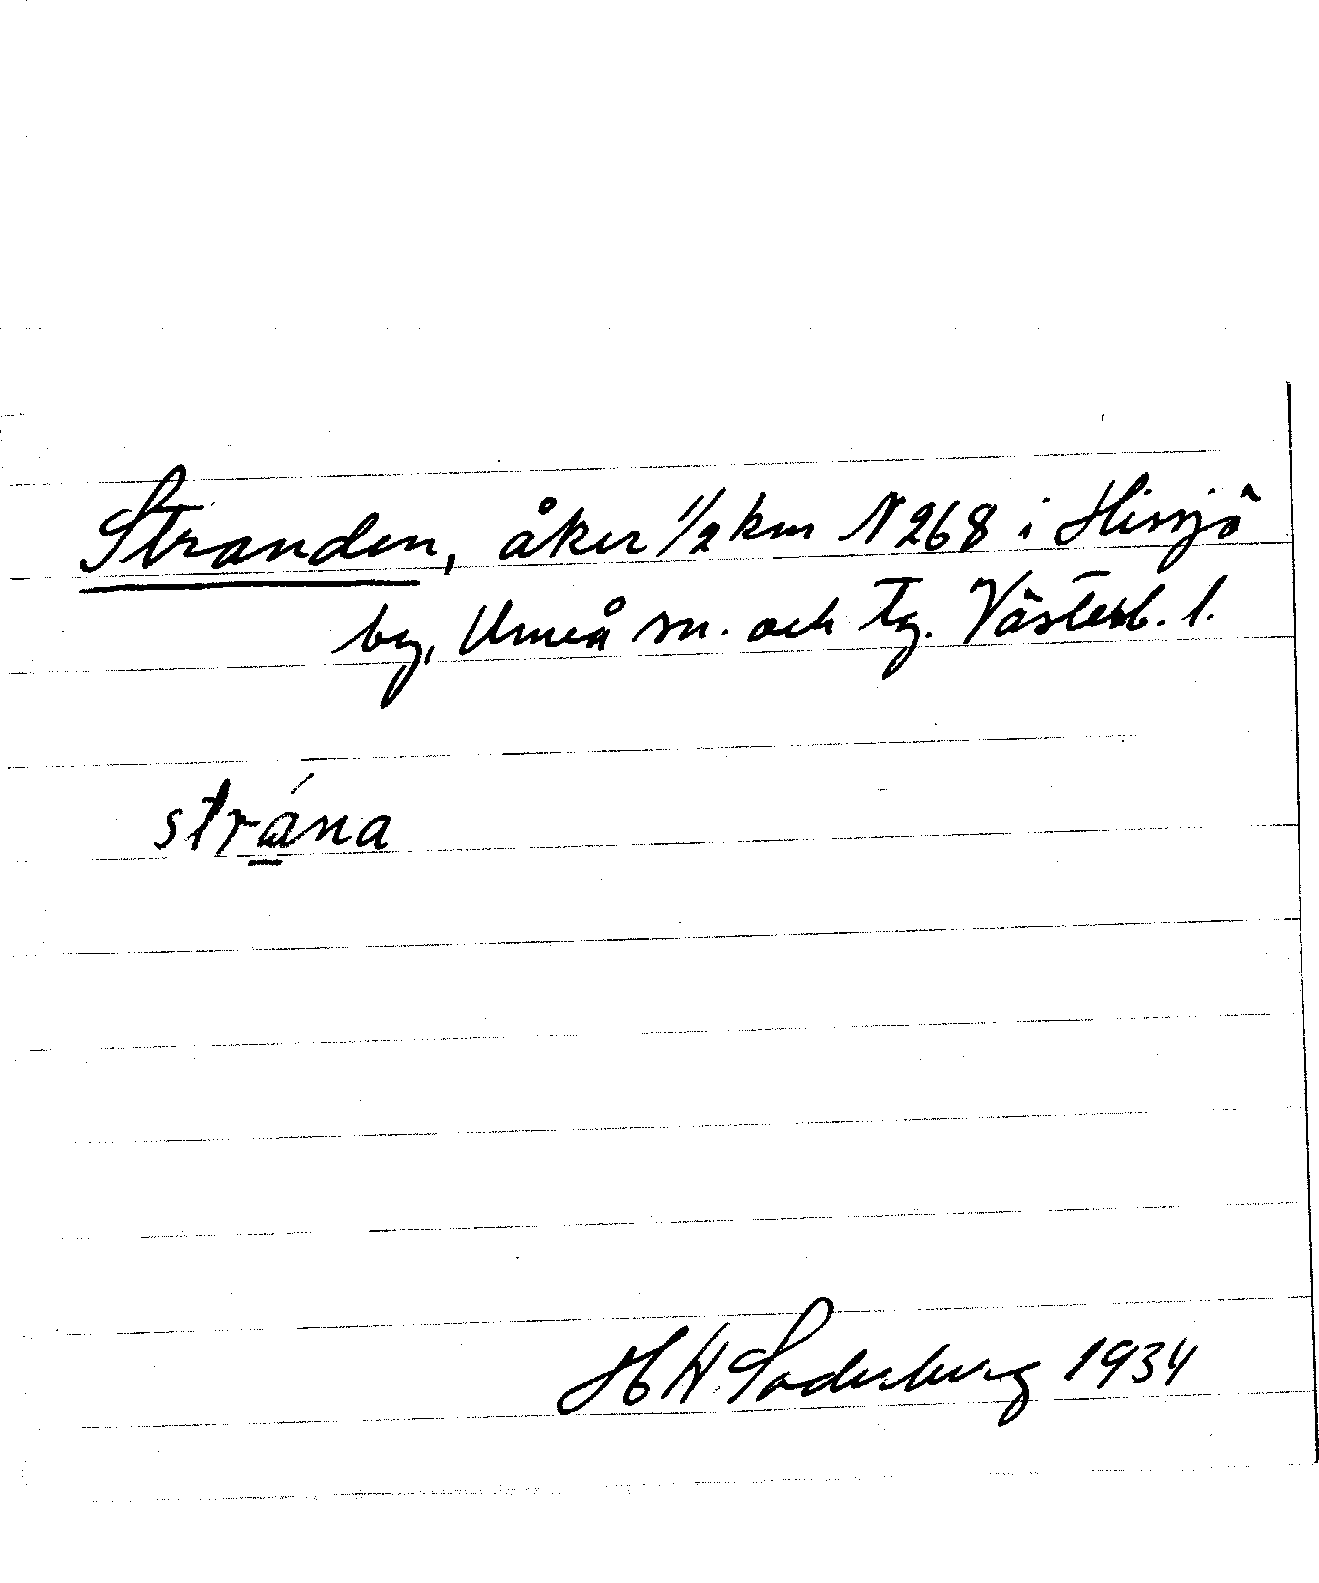 Stranden, åker 1/2 km N 268 i Hissjö
by, Umeå sn. och tg. Västerb. l.
strána
H W Söderberg 1934